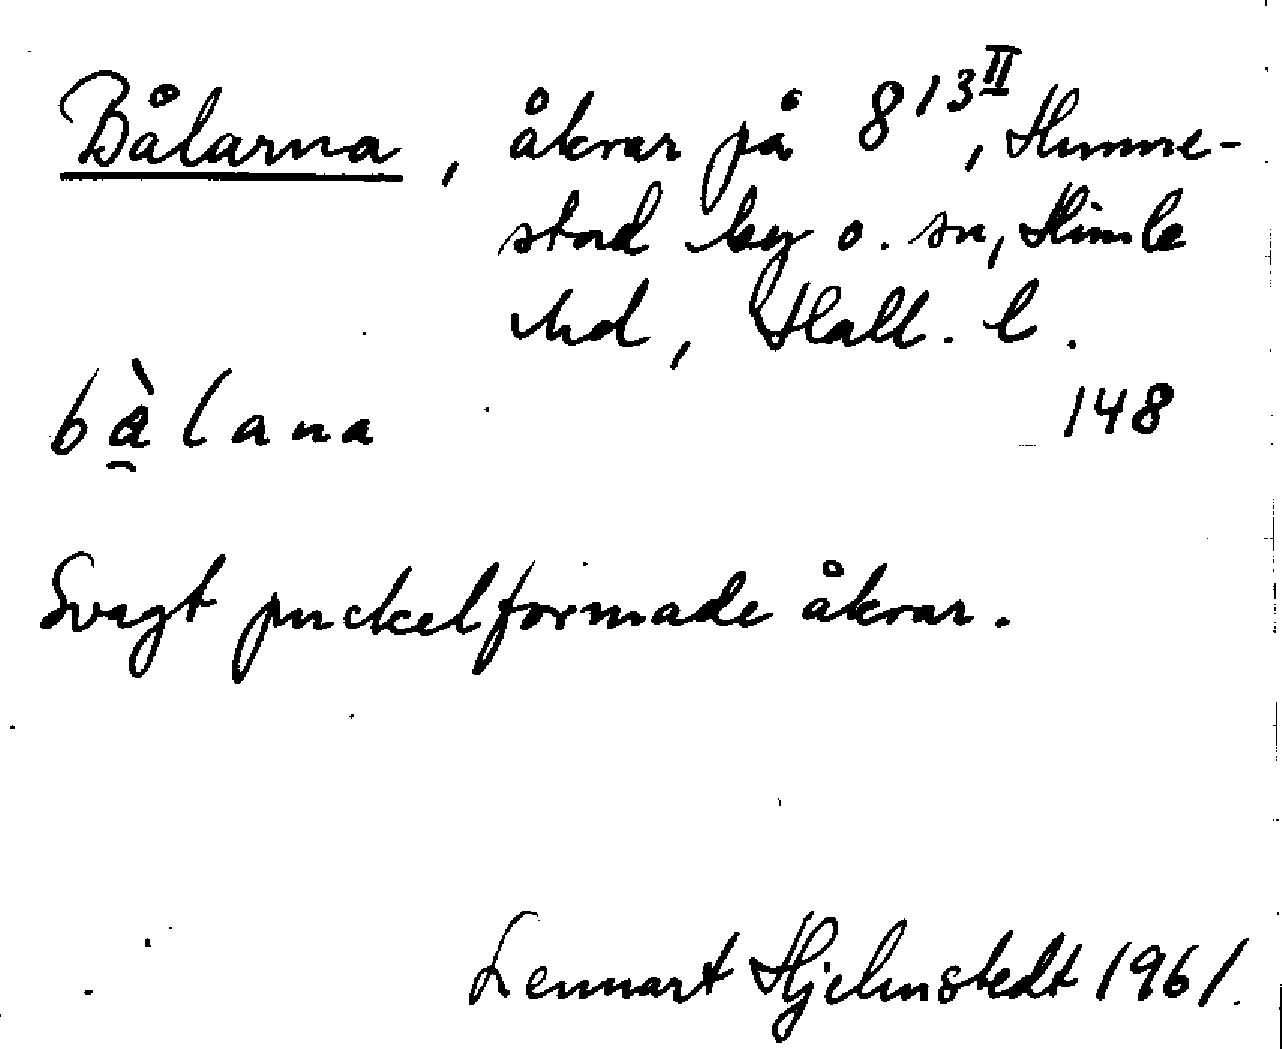 Bålarna, åkrar på 8¹³ᴵᴵ, Humme-
stad by o. sn, Himle
hd, Hall. l.
bàlana 148
Svagt puckelformade åkrar.
Lennart Hjelmstedt 1961.